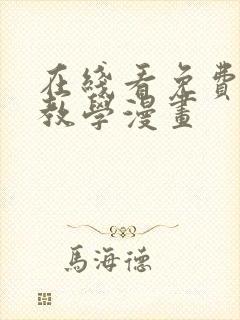 在綫看免費
教學漫畫
馬海德